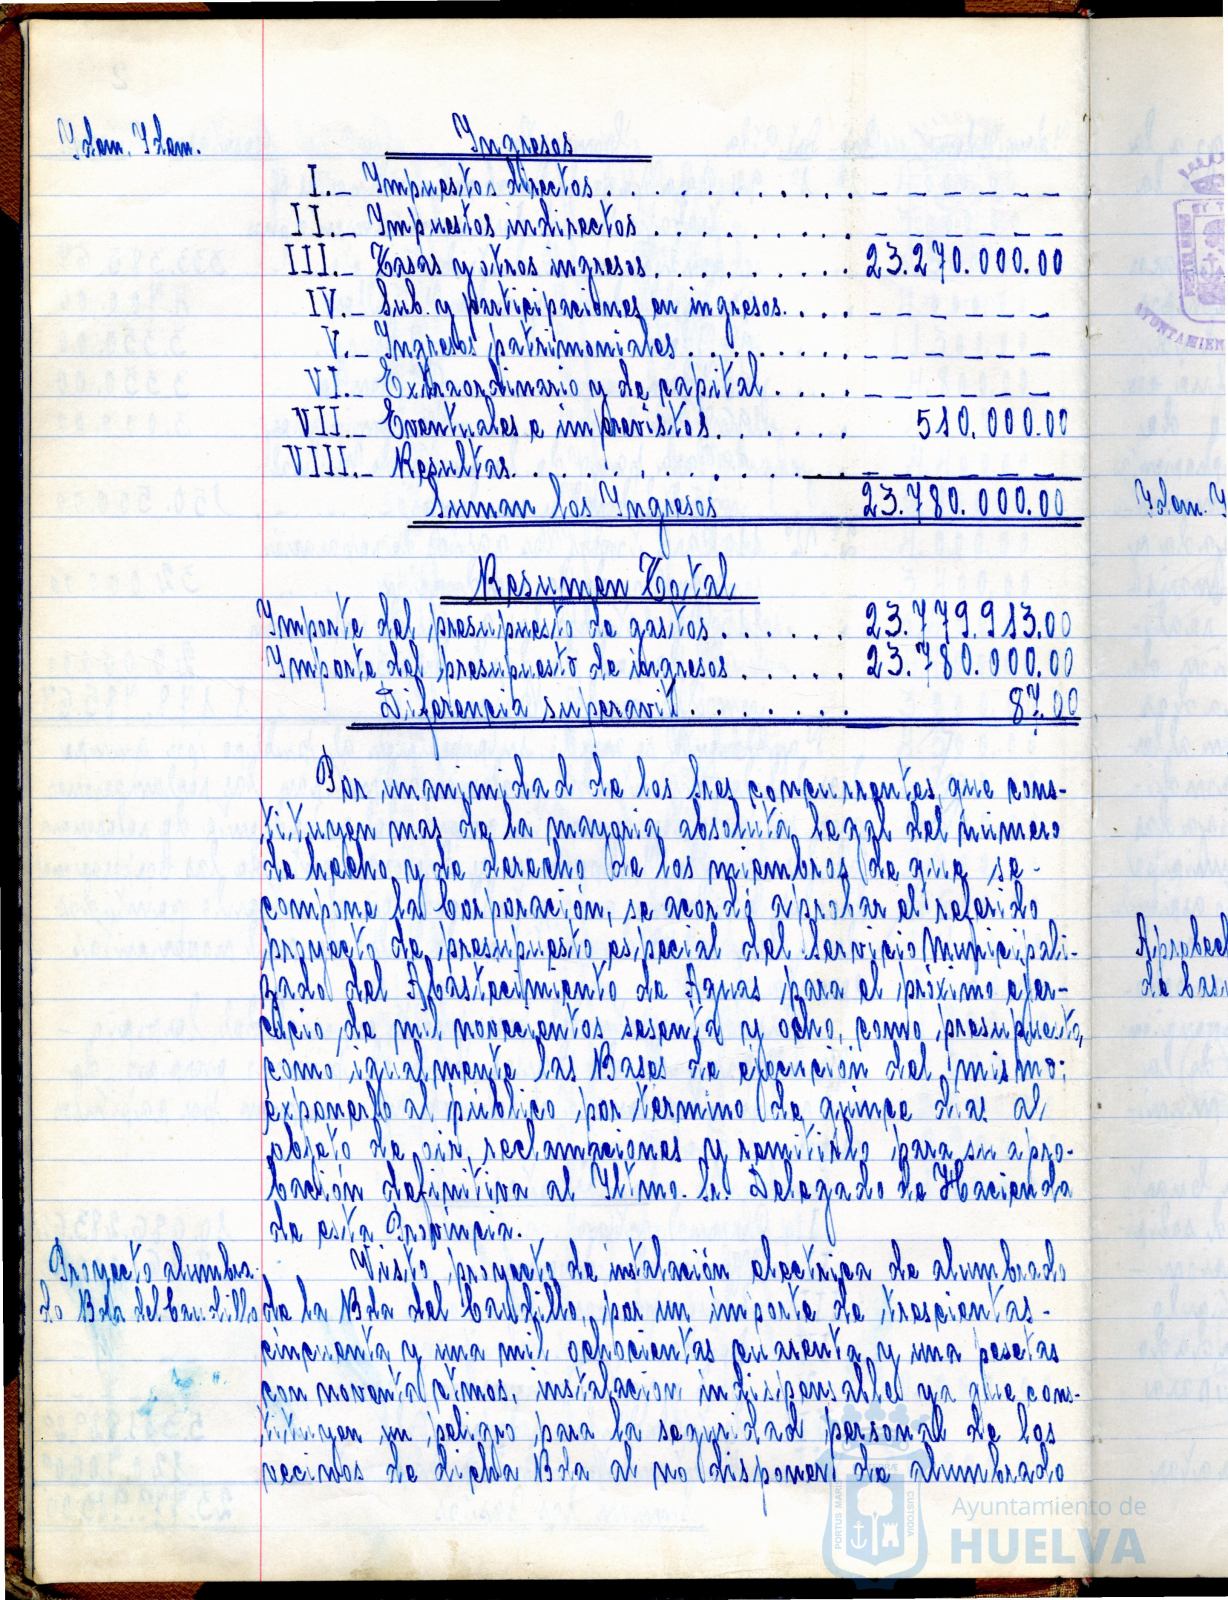 Idem. Idem.
Ingresos
I.- Impuestos directos . . . . . . . . . . . - - - - - -
II.- Impuestos indirectos . . . . . . . . . - - - - - -
III.- Tasas y otros ingresos . . . . . . . . . 23.270.000.00
IV.- Sub. y participaciones en ingresos. . . . - - - - - -
V.- Ingresos patrimoniales . . . . . . . . . - - - - - -
VI.- Extraordinario y de capital . . . . - - - - - -
VII.- Eventuales e imprevistos. . . . . . . 510.000.00
VIII.- Resultas. . . . . . . . . . - - - - - -
Suman los Ingresos 23.780.000.00
Resumen Total
Importe del presupuesto de gastos . . . . . . 23.779.913.00
Importe del presupuesto de ingresos . . . . . 23.780.000.00
Diferencia superavit . . . . . . . . 87.00
Por unanimidad de los Sres concurrentes, que cons-
tituyen mas de la mayoria absoluta legal del número
de hecho y de derecho de los miembros de que se-
compone la Corporación, se acordó aprobar el referido
proyecto de presupuesto especial del Servicio Municipali-
zado del Abastecimiento de Aguas para el próximo ejer-
cicio de mil novecientos sesenta y ocho, como presupuesto,
como igualmente las Bases de ejecución del mismo;
exponerlo al público por termino de quince dias al
objeto de oir reclamaciones y remitirlo para su apro-
bación definitiva al Iltmo. Sr. Delegado de Hacienda
de esta Provincia.
Proyecto alumbra-
do Bda del Caudillo
Visto proyecto de instalación electrica de alumbrado
de la Bda del Caudillo, por un importe de trescientas-
cincuenta y una mil ochocientas cuarenta y una pesetas
con noventa ctmos, instalacion indispensable ya que cons-
tituyen un peligro para la seguridad personal de los
vecinos de dicha Bda al no disponer de alumbrado
Idem. I
Aprobac
de bas
AYUNTAMIEN
PORTUS MARIS
CUSTODIA
Ayuntamiento de
HUELVA